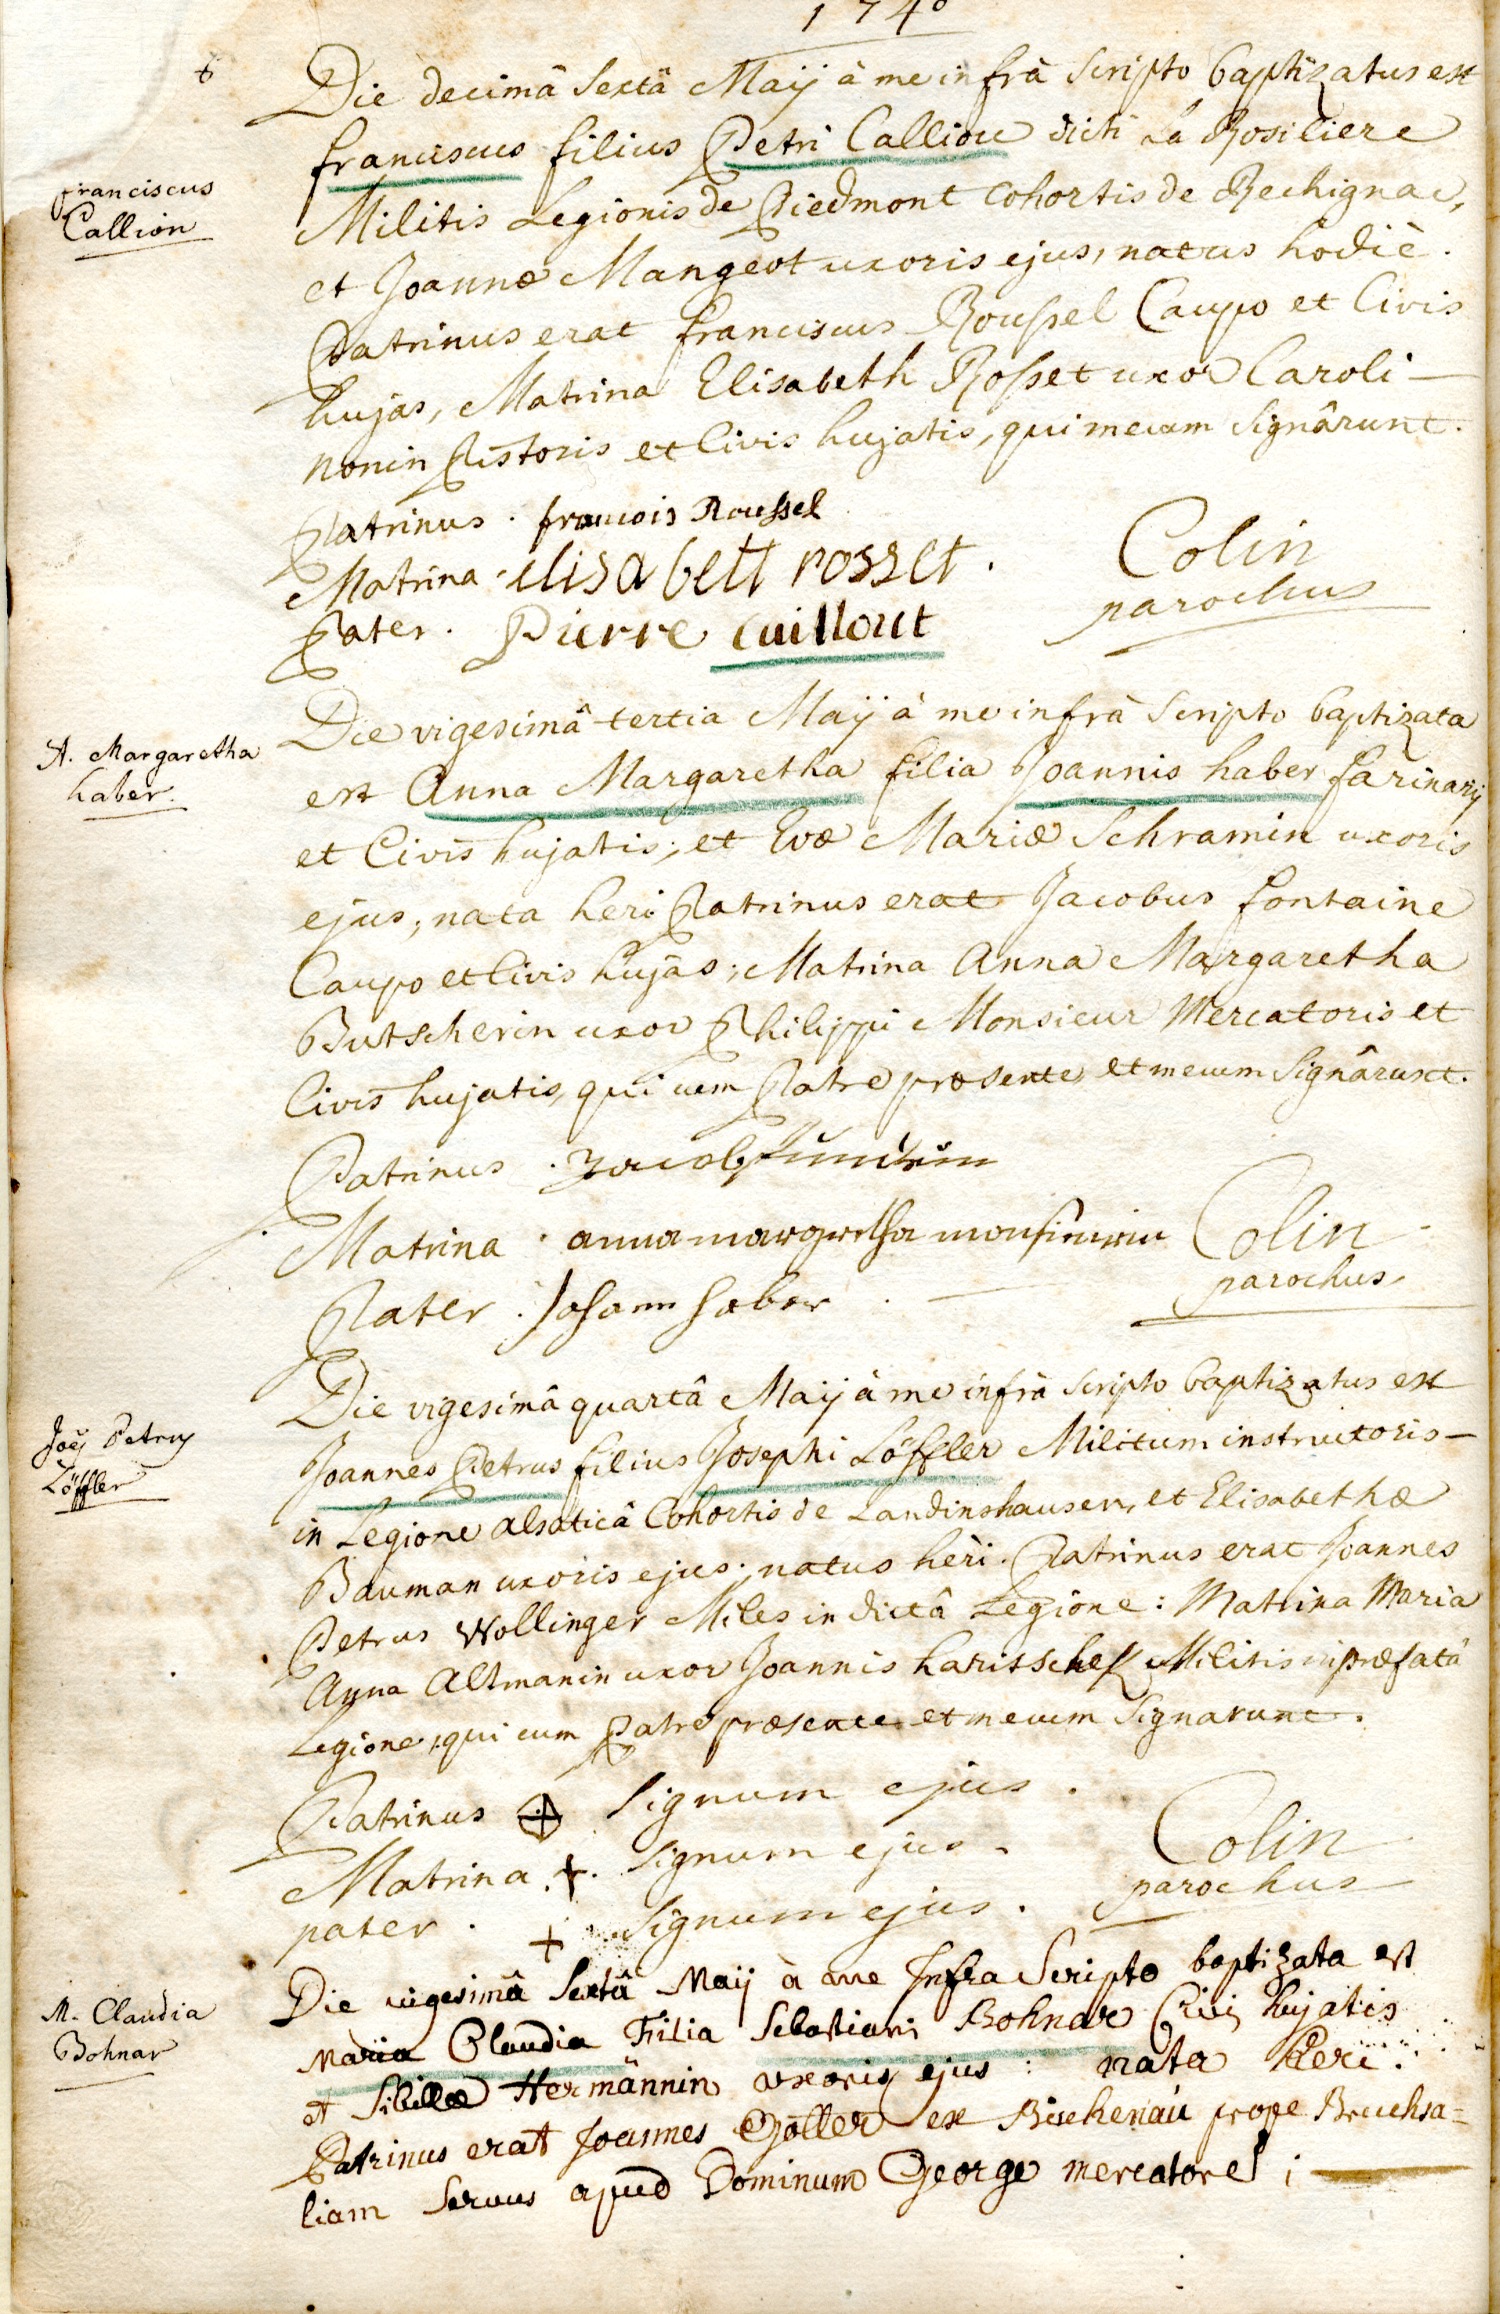 1740
Die decimâ Sextâ Maij à me infrà Scripto baptizatus est
franciscus
Callion
franciscus filius Petri Calliou dicti La Rosiliere
Militis Legionis de Piedmont Cohortis de Rechignac,
et Joannæ Mangeot uxoris ejus, natus hodiè.
Patrinus erat franciscus Roussel Caupo et Civis
hujas, Matrina Elisabeth Rosset uxor Caroli
Nonin Pistoris et Civis hujatis, qui mecum Signârunt.
Patrinus . francois Roussel
Matrina . elisabett rosset .
Pater . Pierre cuillout
Colin
parochus
A. Margaretha
haber
Die vigesimâ tertia Maij à me infrà Scripto baptizata
est Anna Margaretha filia Joannis haber farinarij
et Civis hujatis; et Evæ Mariæ Schramin uxoris
ejus; nata heri Patrinus erat Jacobus fontaine
Caupo et Civis hujas; Matrina Anna Margaretha
Butscherin uxor Philippi Monsieur Mercatoris et
Civis hujatis, qui cum Patre præsente, et mecum Signârunt.
Patrinus .
Matrina . anna margretha
Pater . Johann haber .
Colin
parochus
Joēs Petrus
Löffler
Die vigesimâ quartâ Maij à me infrà Scripto baptizatus est
Joannes Petrus filius Josephi Löffler Militum instructoris
in Legione alsaticâ Cohortis de Landinshausen, et Elisabethæ
Bauman uxoris ejus; natus hèri. Patrinus erat Joannes
Petrus Wollinger Miles in dictâ Legione: Matrina Maria
Anna Altmanin uxor Joannis Militis in præfatâ
Legione, qui cum Patre præsente et mecum Signarunt.
Patrinus + Signum ejus .
Matrina . + . Signum ejus .
pater . + Signum ejus .
Colin
parochus
M. Claudia
Bohnar
Die vigesimâ Sextâ Maij à me Infra Scripto baptizata est
Maria Claudia Filia Sebastiani Bohnar Civis hujatis
et Sibillæ Hermännin uxoris ejus : nata Heri .
Patrinus erat Joannes Göller ex Büchenaú prope Bruchsa=
liam Servus apud Dominum George mercatore ;